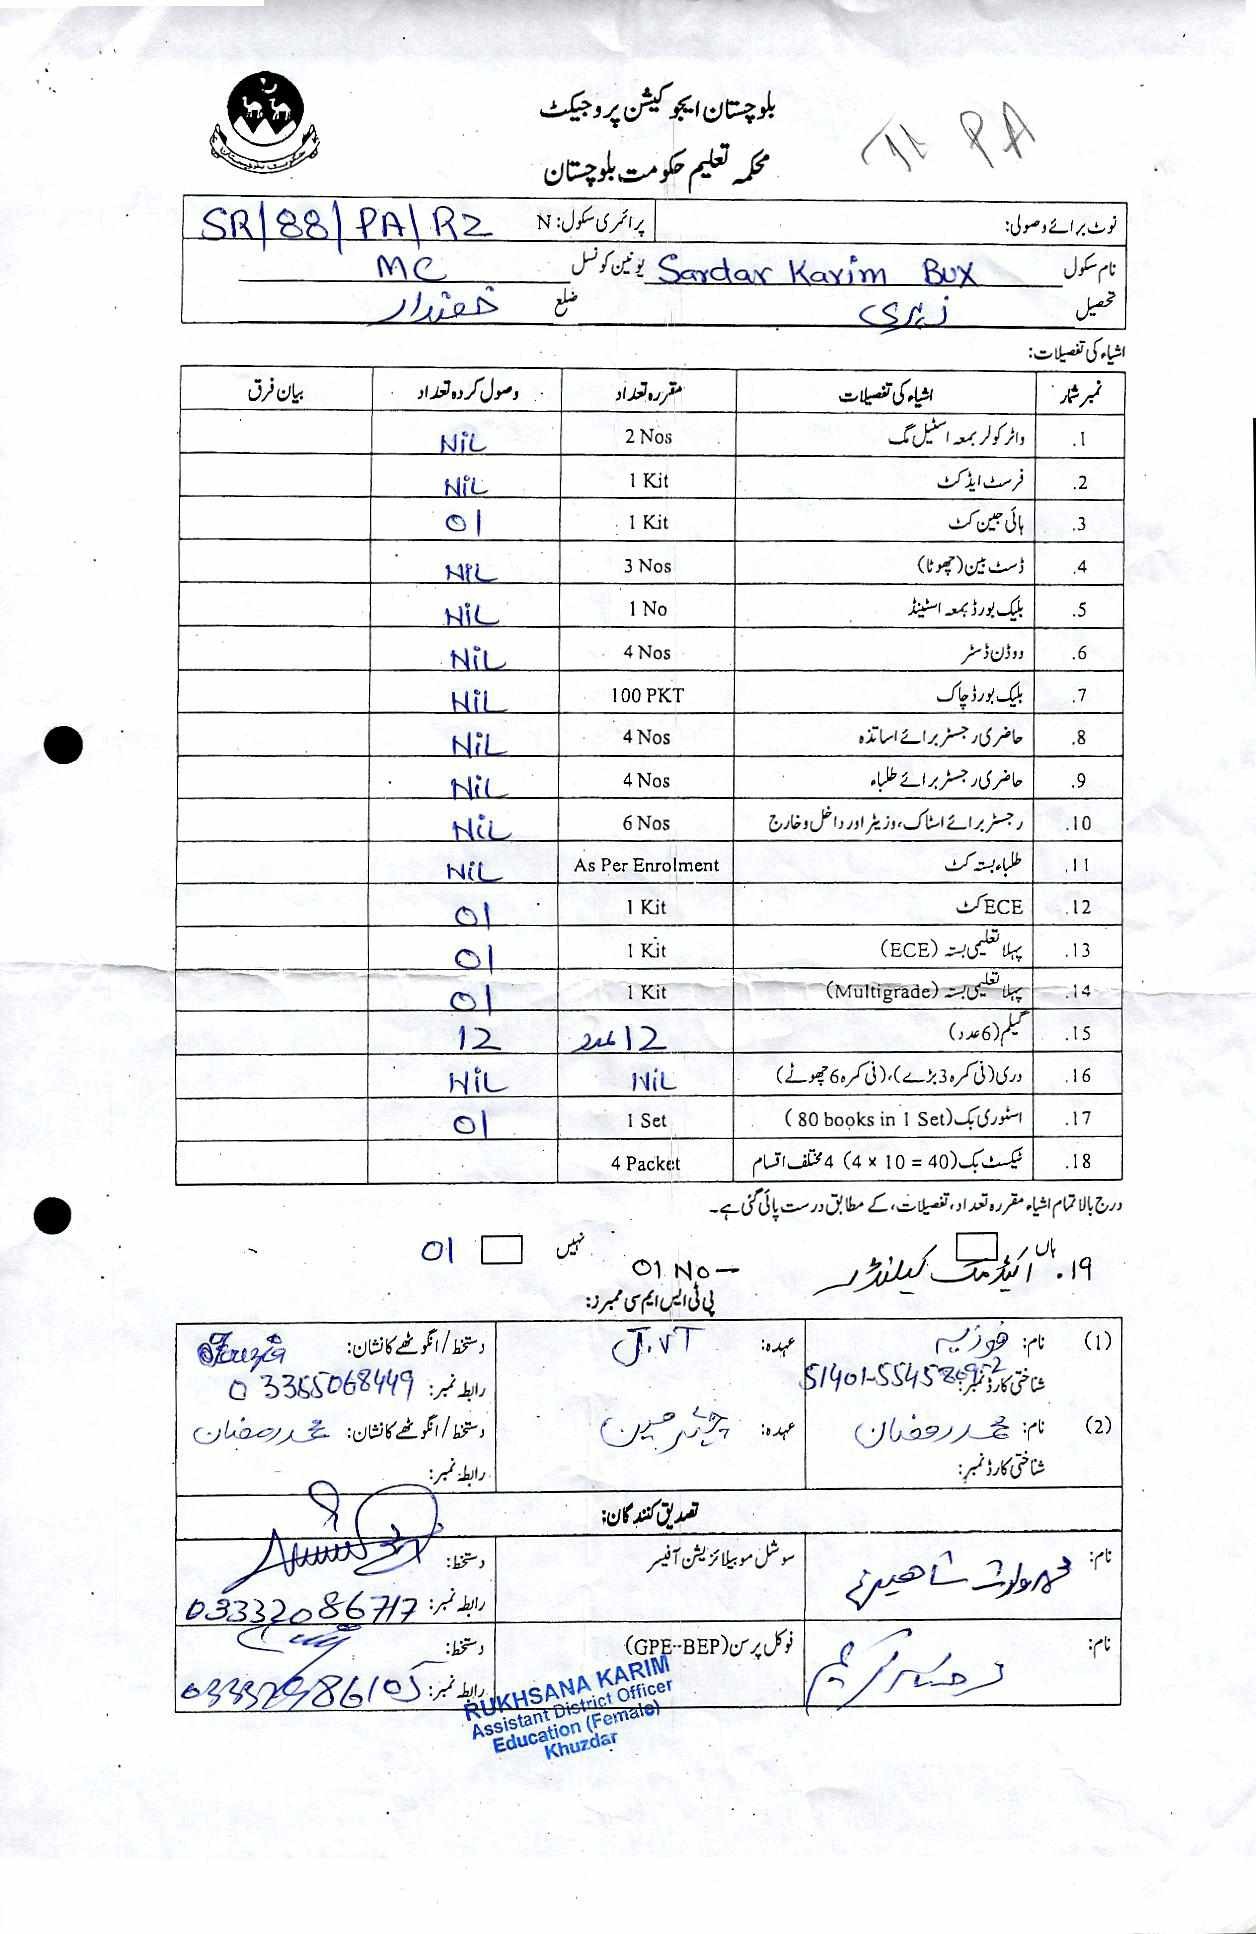 بلوچستان ایجوکیشن پروجیکٹ
محکمہ تعلیم حکومت بلوچستان
PA
حکومت بلوچستان
نوٹ برائے وصولی: پرائمری سکول: N SR/88/PA/R2
نام سکول Sardar Karim Bux یونین کونسل MC
تحصیل زہری ضلع خضدار
اشیاء کی تفصیلات:
نمبر شمار اشیاء کی تفصیلات مقررہ تعداد وصول کردہ تعداد بیان فرق
1. واٹر کولر بمعہ اسٹیل مگ 2 Nos NiL
2. فرسٹ ایڈ کٹ 1 Kit NiL
3. ہائی جین کٹ 1 Kit 01
4. ڈسٹ بین (چھوٹا) 3 Nos NiL
5. بلیک بورڈ بمعہ اسٹینڈ 1 No NiL
6. ووڈن ڈسٹر 4 Nos NiL
7. بلیک بورڈ چاک 100 PKT NiL
8. حاضری رجسٹر برائے اساتذہ 4 Nos NiL
9. حاضری رجسٹر برائے طلباء 4 Nos NiL
10. رجسٹر برائے اسٹاک، وزیٹر اور داخل و خارج 6 Nos NiL
11. طلباء بستہ کٹ As Per Enrolment NiL
12. ECE کٹ 1 Kit 01
13. پہلا تعلیمی بستہ (ECE) 1 Kit 01
14. پہلا تعلیمی بستہ (Multigrade) 1 Kit 01
15. گیلم (6 عدد) 12 عدد 12
16. دری (فی کمرہ 3 بڑے)، (فی کمرہ 6 چھوٹے) NiL NiL
17. اسٹوری بک (80 books in 1 Set) 1 Set 01
18. ٹیکسٹ بک (4 × 10 = 40) 4 مختلف اقسام 4 Packet
درج بالا تمام اشیاء مقررہ تعداد، تفصیلات، کے مطابق درست پائی گئی ہے۔
ہاں نہیں 01
۱۹. اکیڈمک کیلنڈر 01 No
پی ٹی ایس ایم سی ممبرز:
(1) نام: فوزیہ عہدہ: J.VT دستخط/انگوٹھے کا نشان: Fouzia
شناختی کارڈ نمبر: رابطہ نمبر: 03365068449
(2) نام: محمد رمضان عہدہ: چیئرمین دستخط/انگوٹھے کا نشان: محمد رمضان
شناختی کارڈ نمبر: رابطہ نمبر:
تصدیق کنندگان:
نام: سوشل موبیلائزیشن آفیسر دستخط:
رابطہ نمبر: 03332086717
نام: فوکل پرسن (GPE-BEP) دستخط:
رابطہ نمبر:
RUKHSANA KARIM
Assistant District Officer
Education (Female)
Khuzdar